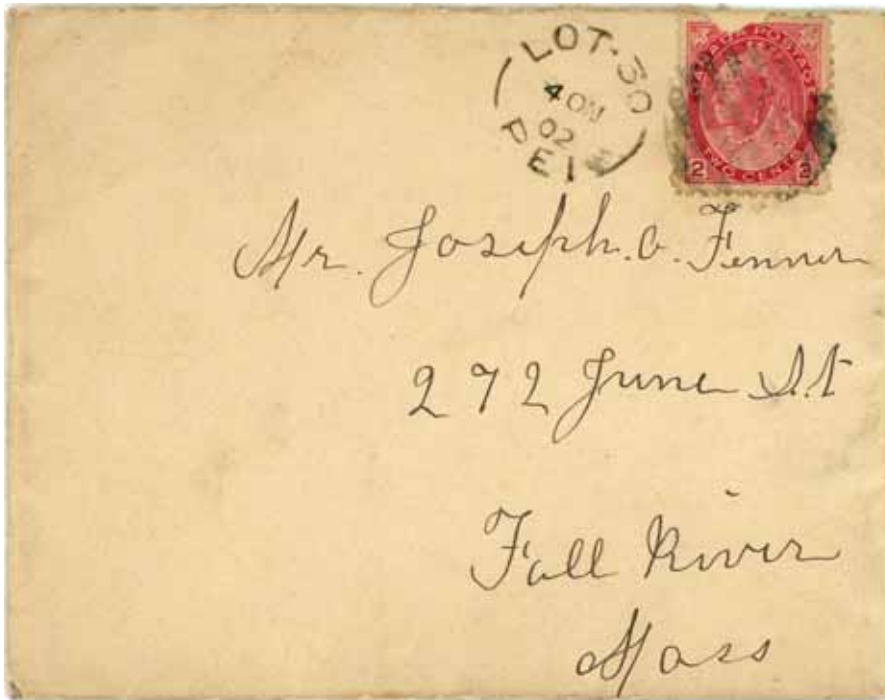 LOT-30
02
P E I
CANADA POSTAGE
TWO CENTS
2 2
Mr. Joseph. O. Fenner
272 June St
Fall River
Mass